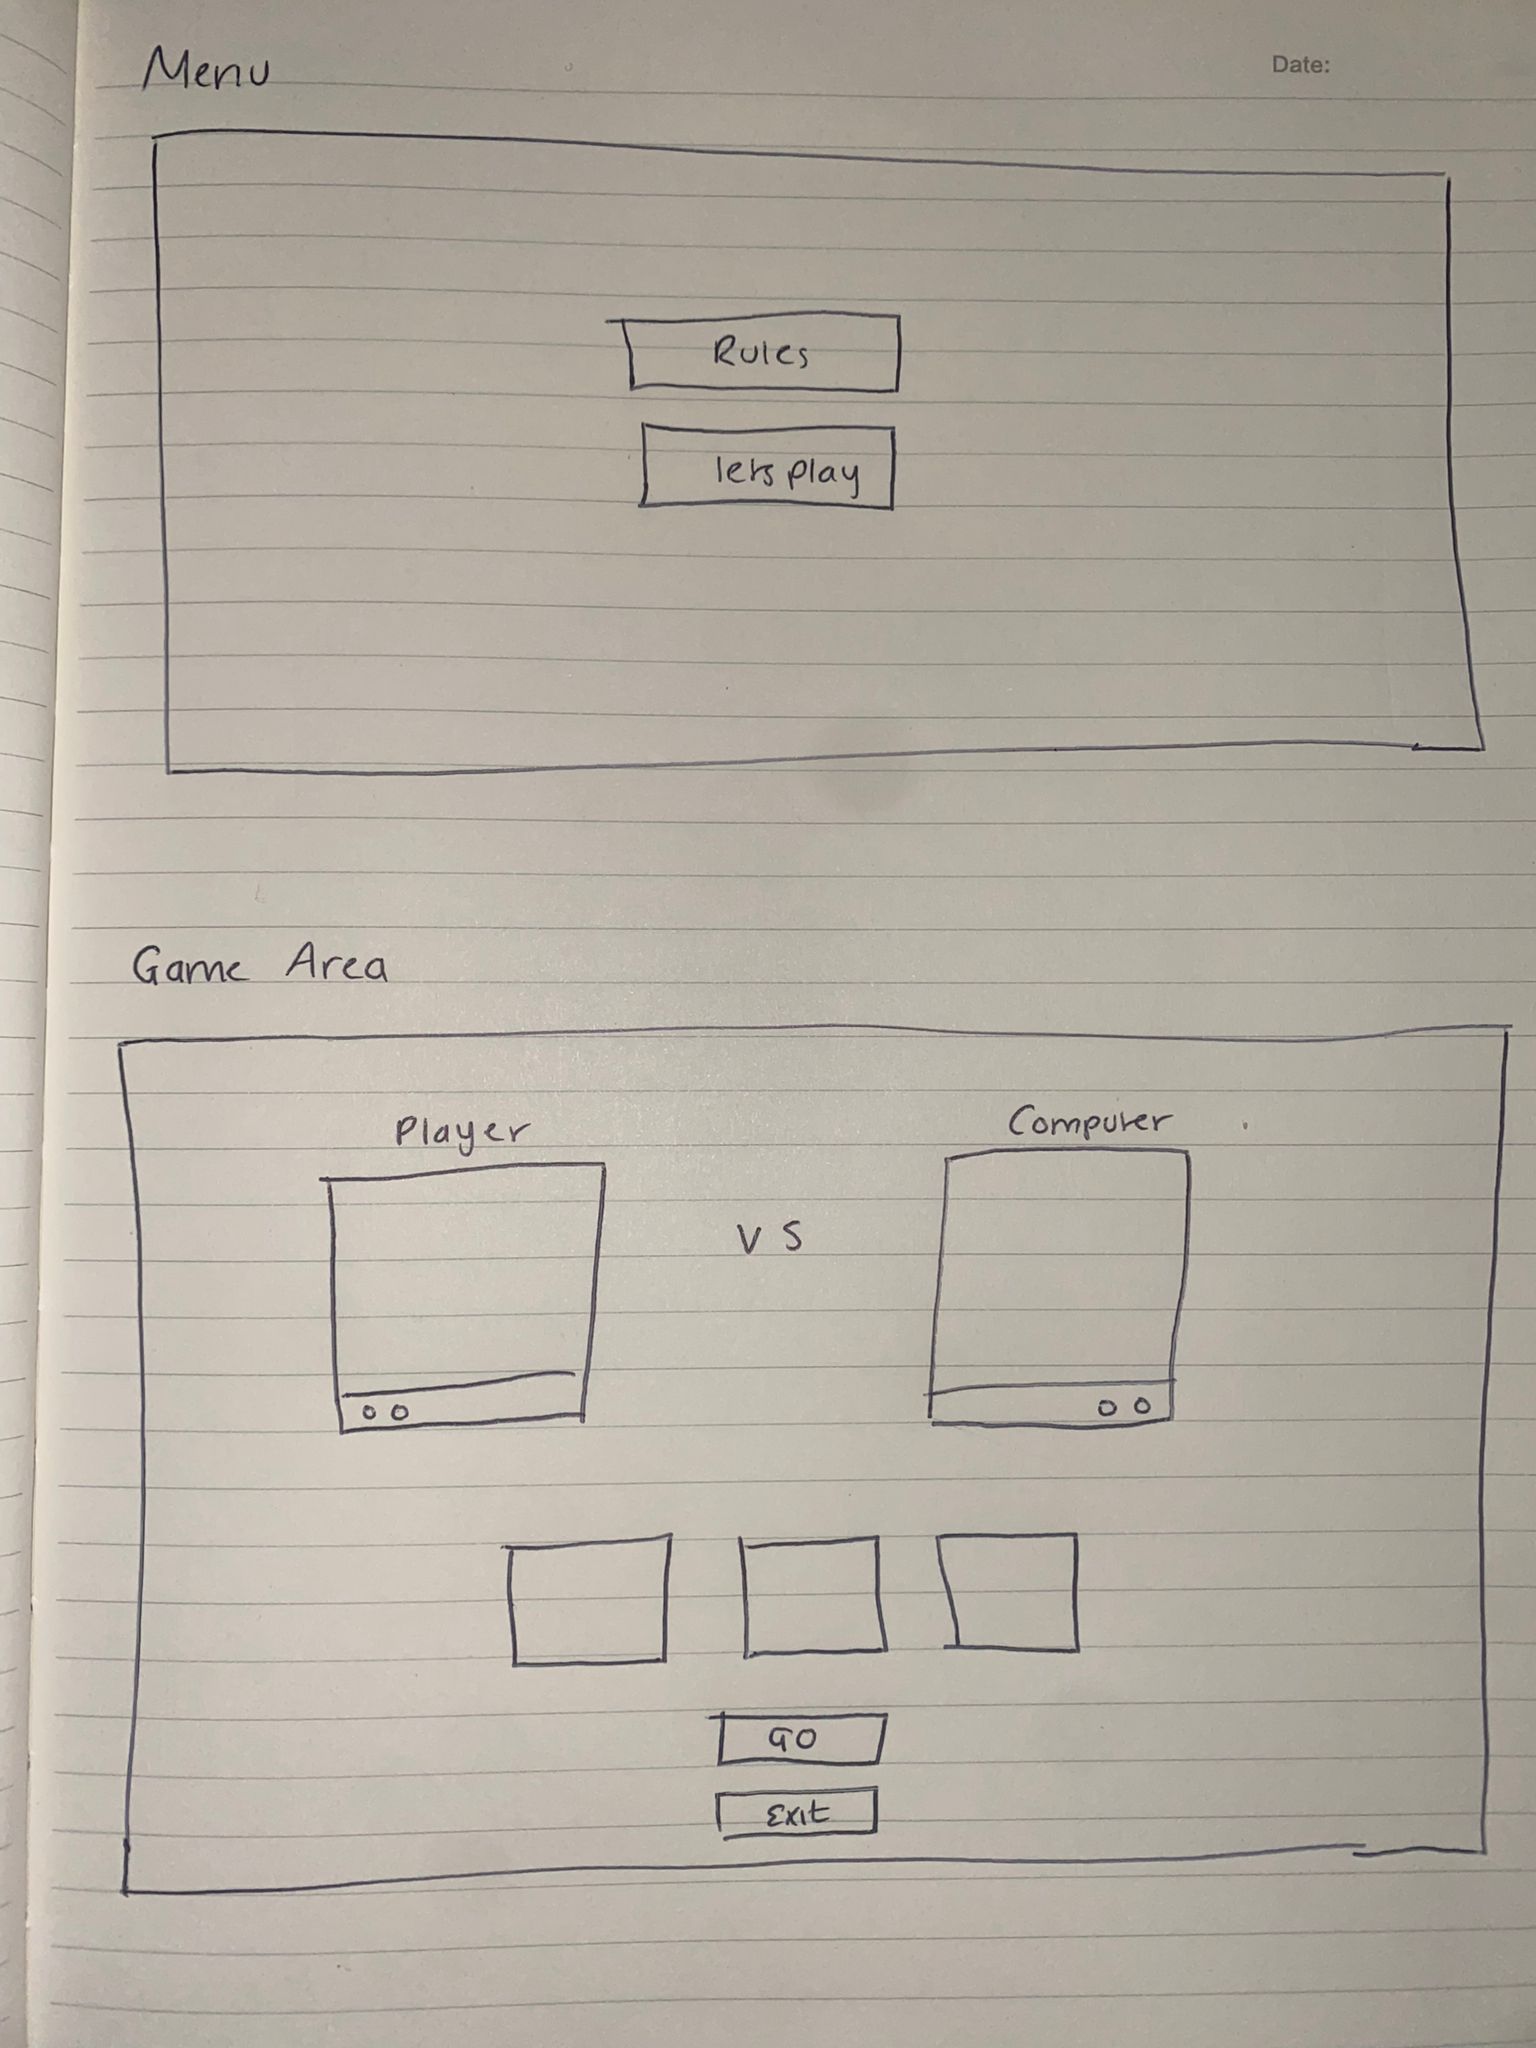 Menu
Date:
Rules
lets play
Game Area
Player
Computer
VS
GO
Exit